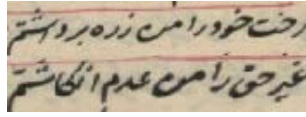 رخت خود را من زره برداشتم
غیر حق را من عدم انگاشتم